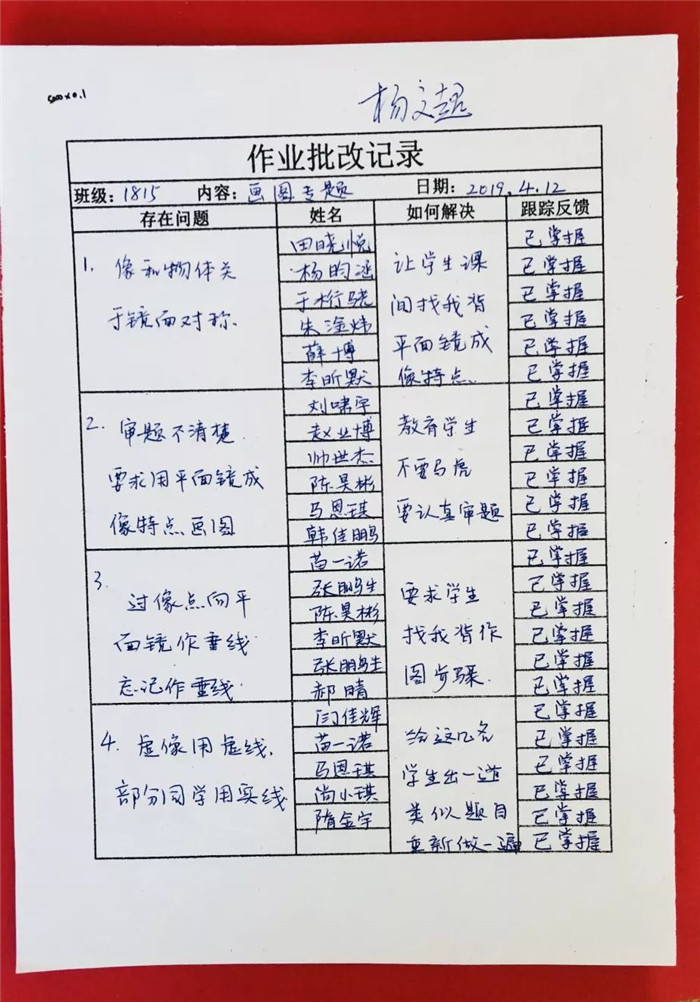 500×0.1
杨文超
作业批改记录
班级：1815 内容：画图专题 日期：2019.4.12
存在问题 姓名 如何解决 跟踪反馈
1. 像和物体关
于镜面对称.
田晓悦
杨昀涵
于桁骁
朱淦炜
薛博
李昕默
让学生课
间找我背
平面镜成
像特点.
已掌握
已掌握
已掌握
已掌握
已掌握
已掌握
2. 审题不清楚
要求用平面镜成
像特点画图
刘啸宇
赵业博
帅世杰
陈昊彬
马恩琪
韩佳鹏
教育学生
不要马虎
要认真审题
已掌握
已掌握
已掌握
已掌握
已掌握
已掌握
3. 过像点向平
面镜作垂线
忘记作垂线
苗一诺
张鹏生
陈昊彬
李昕默
张鹏生
郝晴
要求学生
找我背作
图步骤.
已掌握
已掌握
已掌握
已掌握
已掌握
已掌握
4. 虚像用虚线,
部分同学用实线
闫佳辉
苗一诺
马恩琪
尚小琪
隋金宇
给这几名
学生出一道
类似题目
重新做一遍
已掌握
已掌握
已掌握
已掌握
已掌握
已掌握